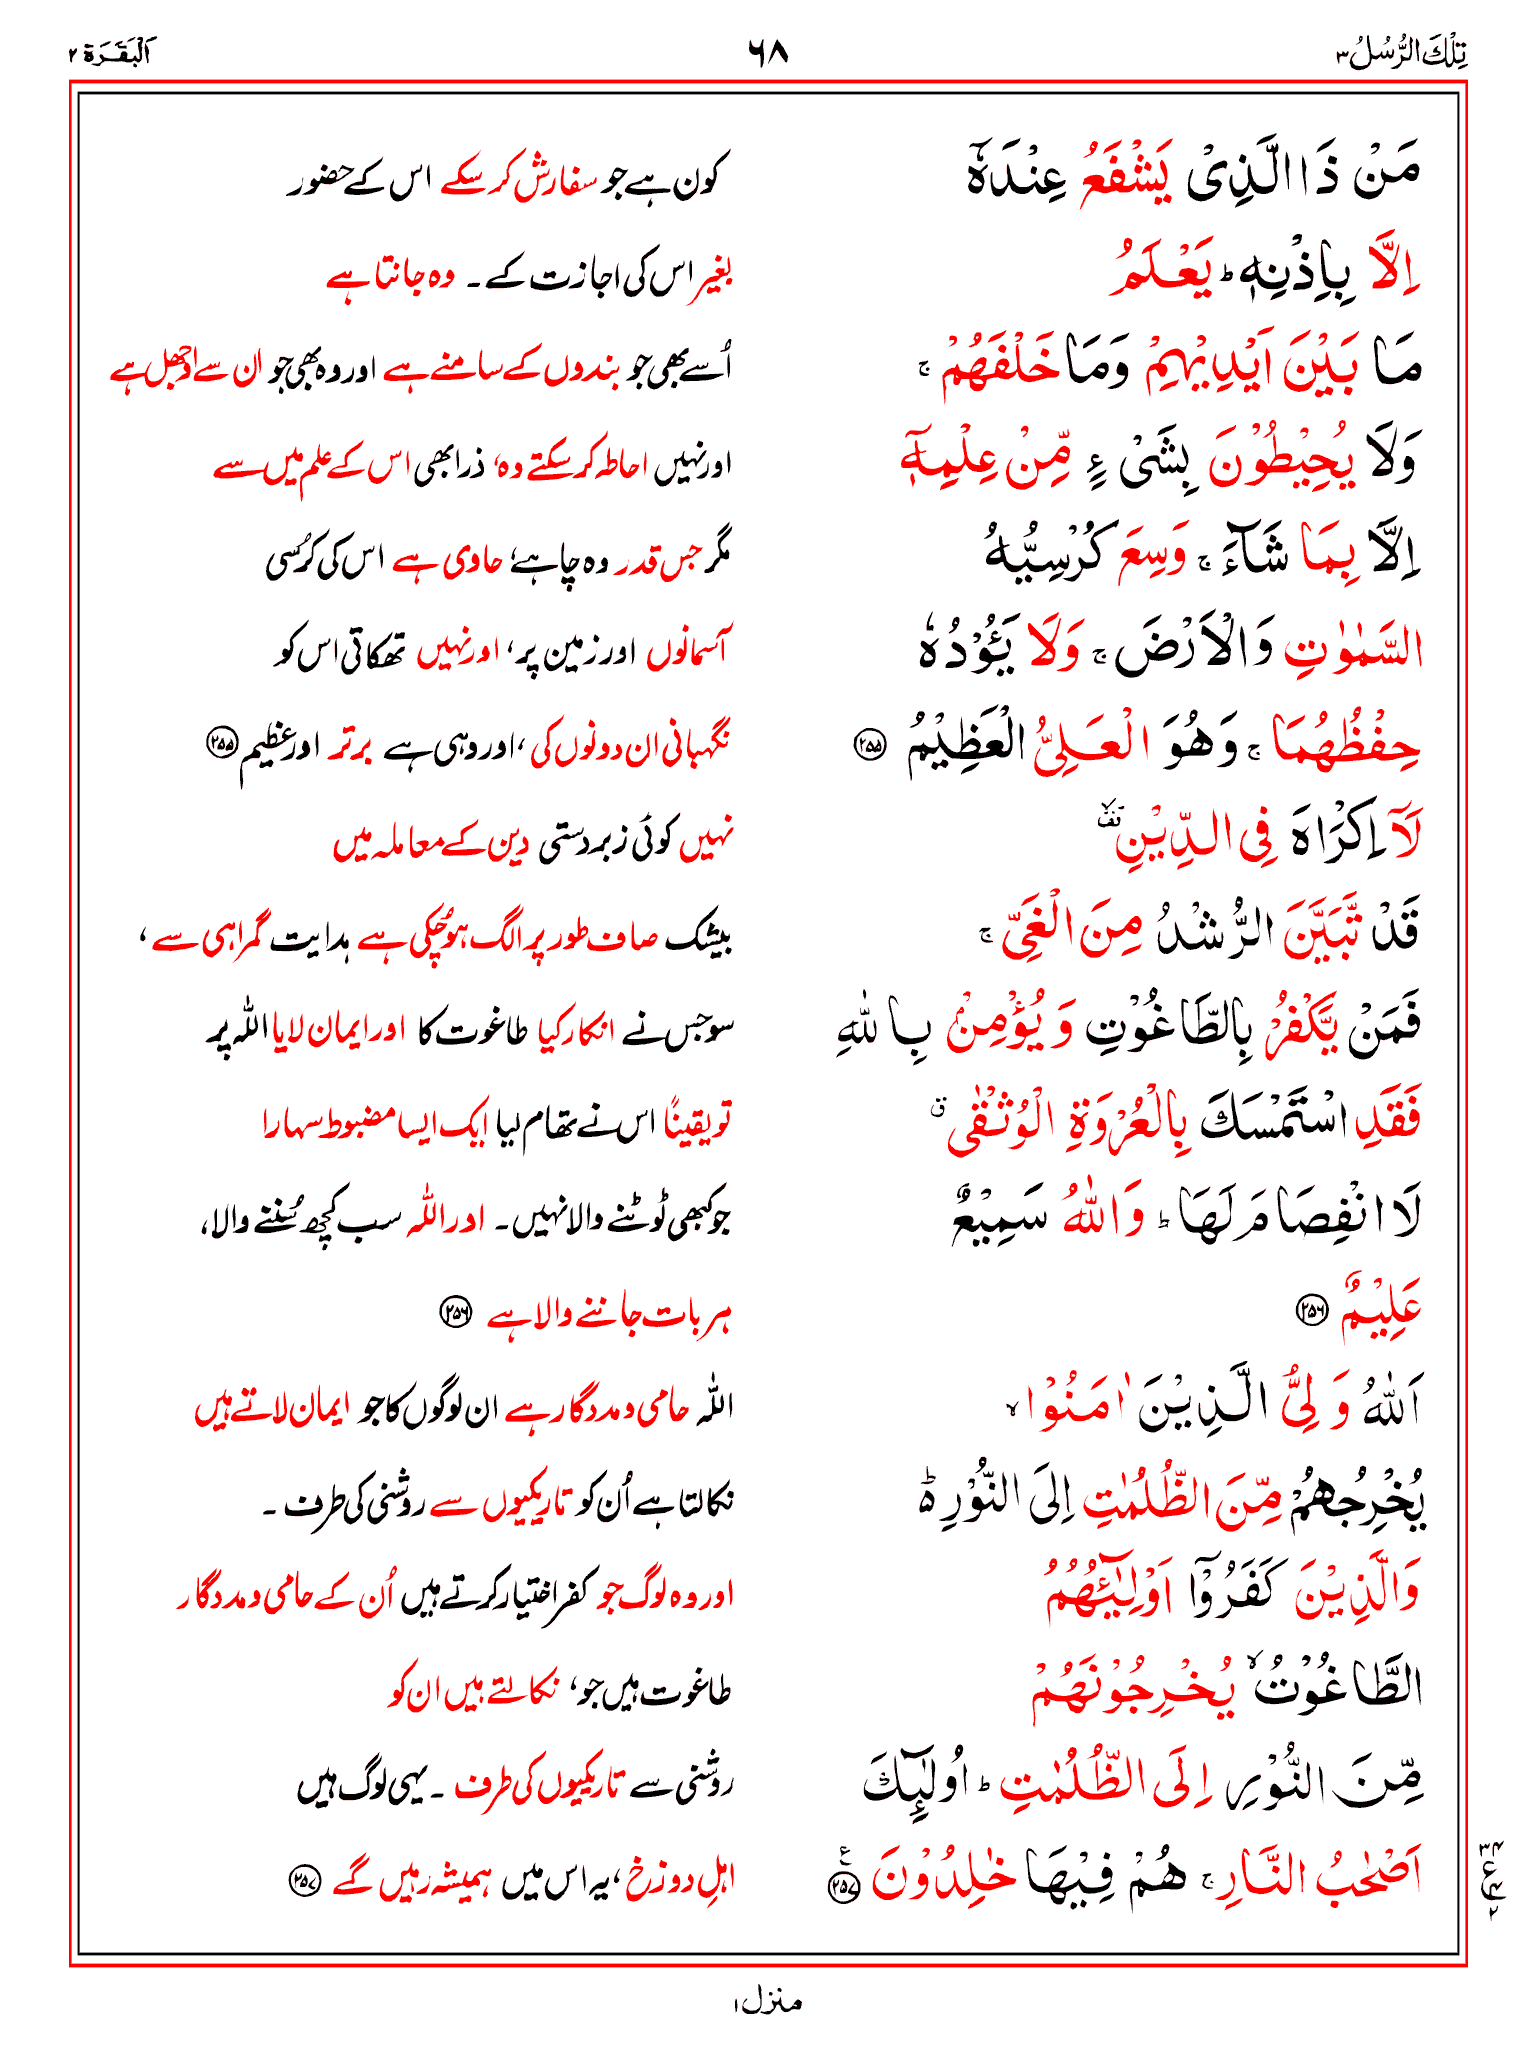 تِلْكَ الرُّسُلُ ۳ ۶۸ اَلْبَقَرَة ۲
مَنْ ذَا الَّذِیْ یَشْفَعُ عِنْدَهٗۤ کون ہے جو سفارش کرسکے اس کے حضور
اِلَّا بِاِذْنِهٖ ؕ یَعْلَمُ بغیر اس کی اجازت کے۔ وہ جانتا ہے
مَا بَیْنَ اَیْدِیْهِمْ وَمَا خَلْفَهُمْ ۚ اُسے بھی جو بندوں کے سامنے ہے اور وہ بھی جو ان سے اوجھل ہے
وَلَا یُحِیْطُوْنَ بِشَیْءٍ مِّنْ عِلْمِهٖۤ اور نہیں احاطہ کرسکتے وہ، ذرا بھی اس کے علم میں سے
اِلَّا بِمَا شَآءَ ۚ وَسِعَ كُرْسِیُّهُ مگر جس قدر وہ چاہے، حاوی ہے اس کی کُرسی
السَّمٰوٰتِ وَالْاَرْضَ ۚ وَلَا یَـُٔوْدُهٗ آسمانوں اور زمین پر، اور نہیں تھکاتی اس کو
حِفْظُهُمَا ۚ وَهُوَ الْعَلِیُّ الْعَظِیْمُ ﴿۲۵۵﴾ نگہبانی ان دونوں کی، اور وہی ہے برتر اور عظیم ﴿۲۵۵﴾
لَاۤ اِكْرَاهَ فِی الدِّیْنِ ۙ۫ قف نہیں کوئی زبردستی دین کے معاملہ میں
قَدْ تَّبَیَّنَ الرُّشْدُ مِنَ الْغَیِّ ۚ بیشک صاف طور پر الگ ہوچُکی ہے ہدایت گمراہی سے،
فَمَنْ یَّكْفُرْ بِالطَّاغُوْتِ وَ یُؤْمِنْۢ بِاللّٰهِ سو جس نے انکار کیا طاغوت کا اور ایمان لایا اللہ پر
فَقَدِ اسْتَمْسَكَ بِالْعُرْوَةِ الْوُثْقٰی ۗ تو یقیناً اس نے تھام لیا ایک ایسا مضبوط سہارا
لَا انْفِصَامَ لَهَا ؕ وَاللّٰهُ سَمِیْعٌ جو کبھی ٹوٹنے والا نہیں۔ اور اللہ سب کچھ سُننے والا،
عَلِیْمٌ ﴿۲۵۶﴾ ہر بات جاننے والا ہے ﴿۲۵۶﴾
اَللّٰهُ وَلِیُّ الَّذِیْنَ اٰمَنُوْا ۙ اللہ حامی و مددگار ہے ان لوگوں کا جو ایمان لاتے ہیں
یُخْرِجُهُمْ مِّنَ الظُّلُمٰتِ اِلَی النُّوْرِ ؕ۬ نکالتا ہے اُن کو تاریکیوں سے روشنی کی طرف۔
وَالَّذِیْنَ كَفَرُوْۤا اَوْلِیٰٓـُٔهُمُ اور وہ لوگ جو کفر اختیار کرتے ہیں اُن کے حامی و مددگار
الطَّاغُوْتُ ۙ یُخْرِجُوْنَهُمْ طاغوت ہیں جو، نکالتے ہیں ان کو
مِّنَ النُّوْرِ اِلَی الظُّلُمٰتِ ؕ اُولٰٓئِكَ روشنی سے تاریکیوں کی طرف۔ یہی لوگ ہیں
اَصْحٰبُ النَّارِ ۚ هُمْ فِیْهَا خٰلِدُوْنَ ﴿۲۵۷﴾ ع اہلِ دوزخ، یہ اس میں ہمیشہ رہیں گے ﴿۲۵۷﴾
منزل ۱